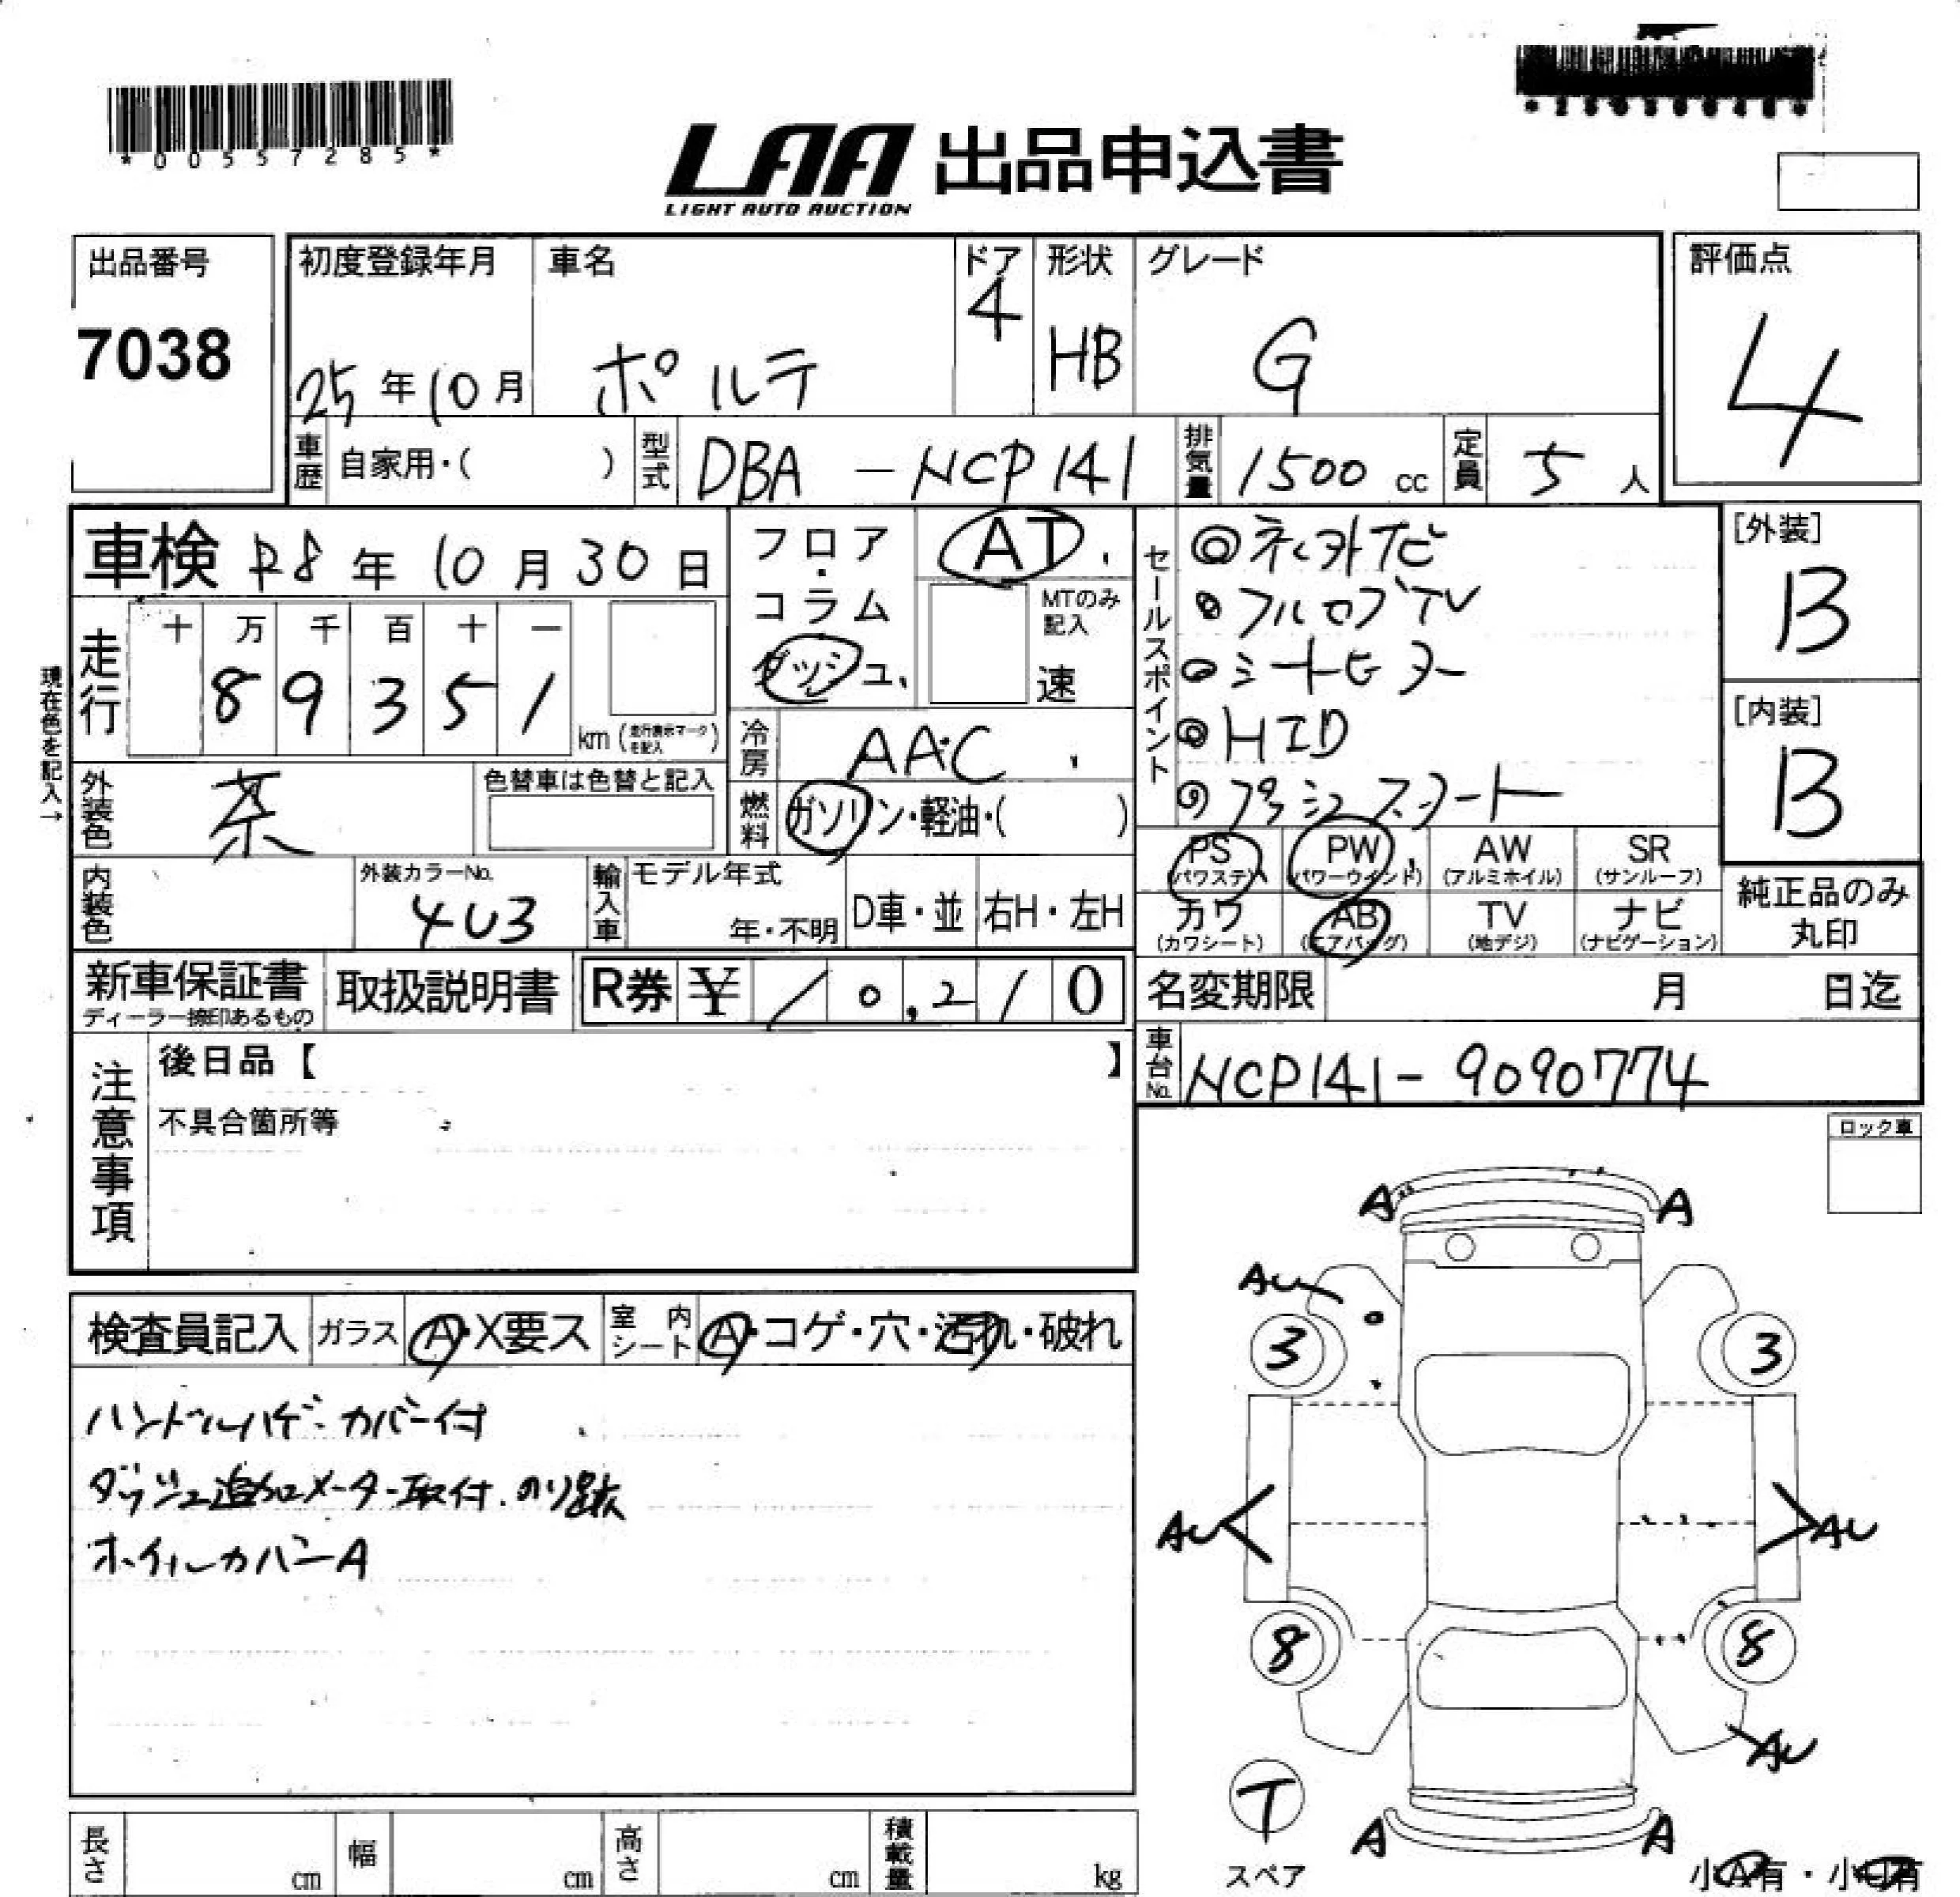 *00557285*
LAA 出品申込書
LIGHT AUTO AUCTION
出品番号
7038
初度登録年月
25年10月
車名
ポルテ
ドア
4
形状
HB
グレード
G
評価点
4
車歴 自家用・( )
型式 DBA-NCP141
排気量 1500 cc
定員 5 人
車検 R8年10月30日
フロア・コラム ダッシュ
AT
MTのみ記入
速
セールスポイント
◎ネイ外ナビ
◎フルセグTV
◎シートヒーター
◎HID
◎プッシュスタート
[外装]
B
[内装]
B
現在色を記入→
走行
十 万 千 百 十 一
8 9 3 5 1
km (走行表示マークを記入)
冷房 AAC
外装色 茶
色替車は色替と記入
燃料 ガソリン・軽油・( )
PS (パワステ) PW (パワーウインド) AW (アルミホイル) SR (サンルーフ)
カワ (カワシート) AB (エアバッグ) TV (地デジ) ナビ (ナビゲーション)
純正品のみ丸印
内装色
外装カラーNo.
4U3
輸入車 モデル年式
年・不明 D車・並 右H・左H
新車保証書
ディーラー捺印あるもの
取扱説明書
R券 ¥ 10,210
名変期限 月 日迄
車台No. NCP141-9090774
注意事項
後日品【 】
不具合箇所等
ロック車
検査員記入 ガラス A・X要ス 室内シート A・コゲ・穴・汚れ・破れ
ハンドルハゲ・カバー付
ダッシュ追加メーター取付.のり跡
ホイルカバーA
A A
AU
3 3
AU AU
8 8
AU
T
スペア
A A
小A有・小U有
長さ cm 幅 cm 高さ cm 積載量 kg